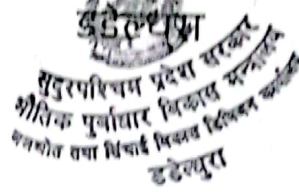 डडेल्धुरा
सुदुरपश्चिम प्रदेश सरकार
भौतिक पुर्वाधार विकास मन्त्रालय
जलश्रोत तथा सिंचाई विकास डिभिजन कार्यालय
डडेल्धुरा